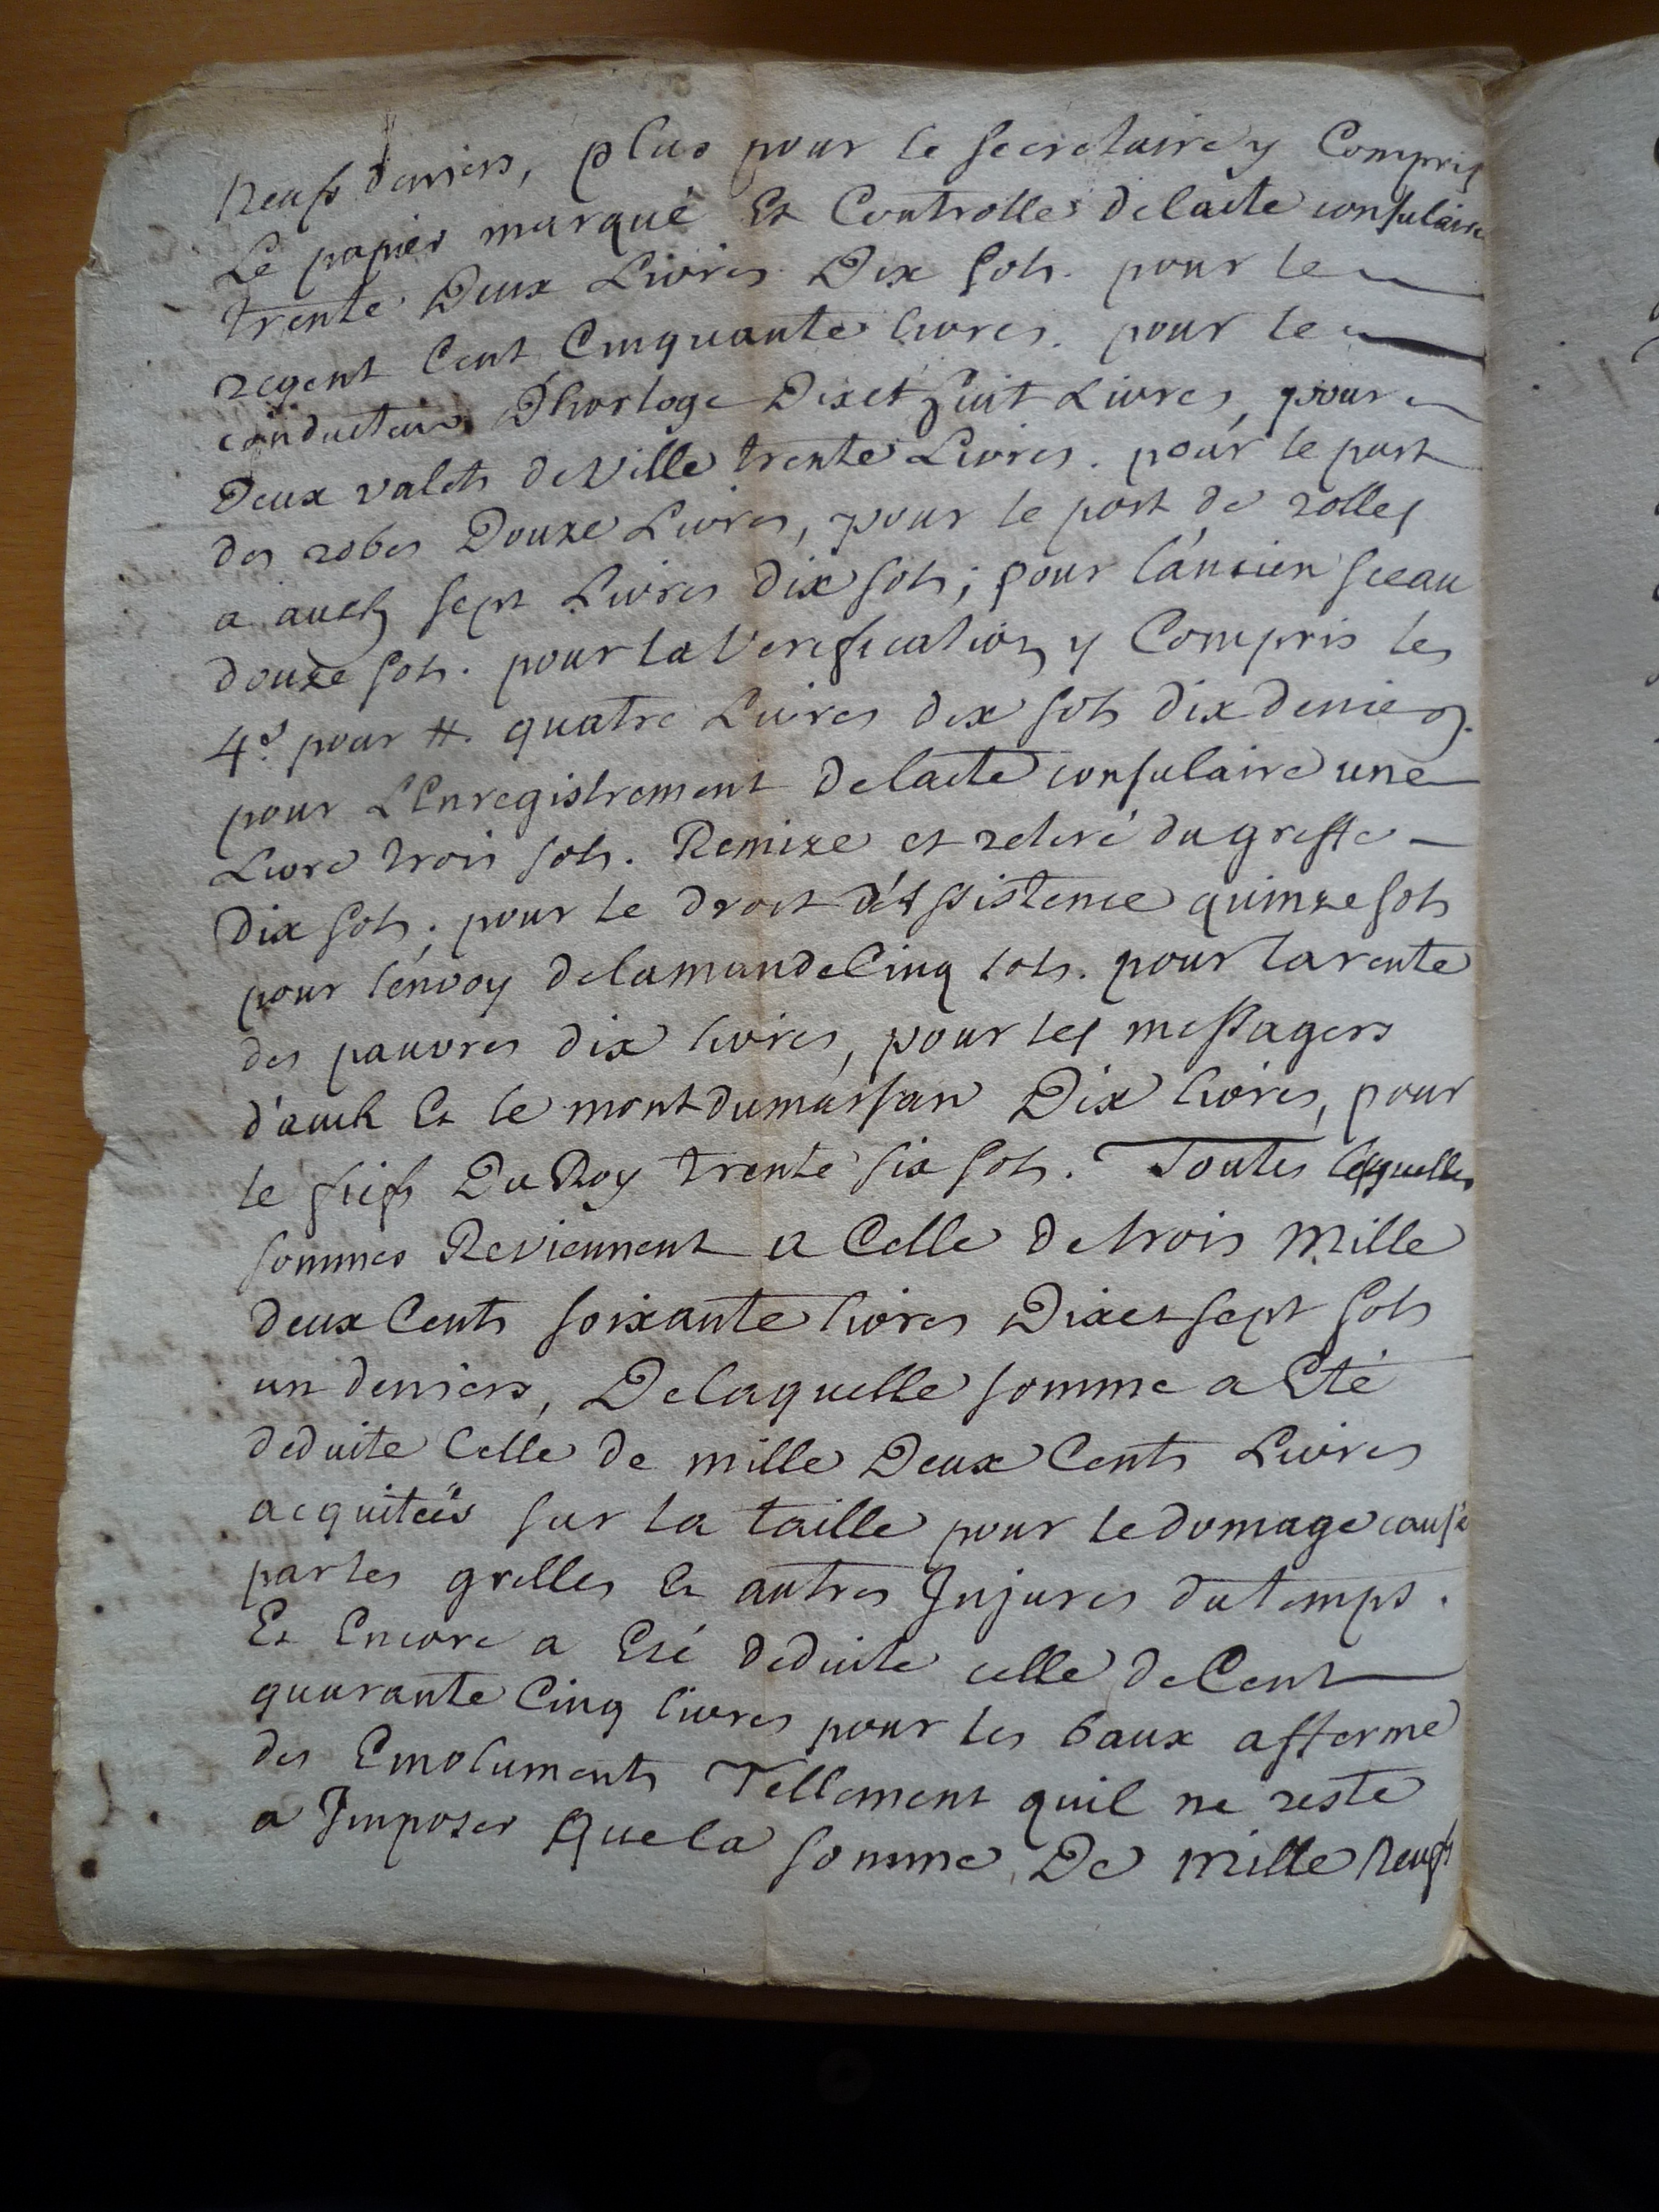 Neufs deniers, plus pour le secretaire y Compris
Le papier marqué Et Controlle de lacte consulaire
trente Deux Livres Dix sols. pour le
regent Cent Cinquante livres. pour le
conducteur D'horloge Dixet huit Livres, pour
Deux valets de Ville trente Livres. pour le port
des robes Douze Livres, pour le port de rolles
a auch sept Livres dix sols; pour l'ancien sceau
douze sols. pour la Verification y Compris les
4d pour ₶. quatre Livres dix sols dix deniers.
pour L'Enregistrement de lacte consulaire une
Livre trois sols. Remize et retiré du greffe
Dix sols; pour le droit d'assistence quinze sols
pour l'envoy de lamande Cinq sols. pour la rente
des pauvres dix livres, pour les messagers
d'auch Et le montdumarsan Dix livres, pour
le fiefs Du Roy trente six sols. Toutes lesquelles
sommes Reviennent a Celle de trois Mille
deux Cents soixante livres Dixet sept sols
un deniers, De laquelle somme a Eté
deduite Celle de mille Deux Cents Livres
acquiteés sur la taille pour le domage causé
par les grelles Et autres Injures du temps.
Et Encore a Eté deduite celle de Cent
quarante Cinq livres pour les baux afferme
des Emoluments Tellement quil ne reste
a Imposer Que la somme De Mille Neufs